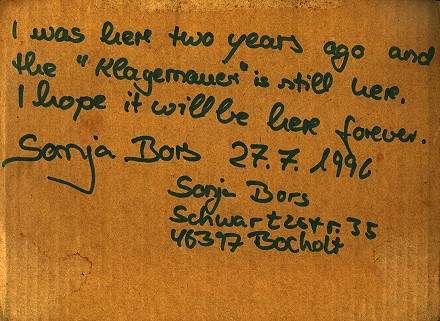 I was here two years ago and
the "Klagemauer" is still here.
I hope it will be here forever.
Sonja Bors 27.7.1996
Sonja Bors
Schwartzstr. 35
46397 Bocholt